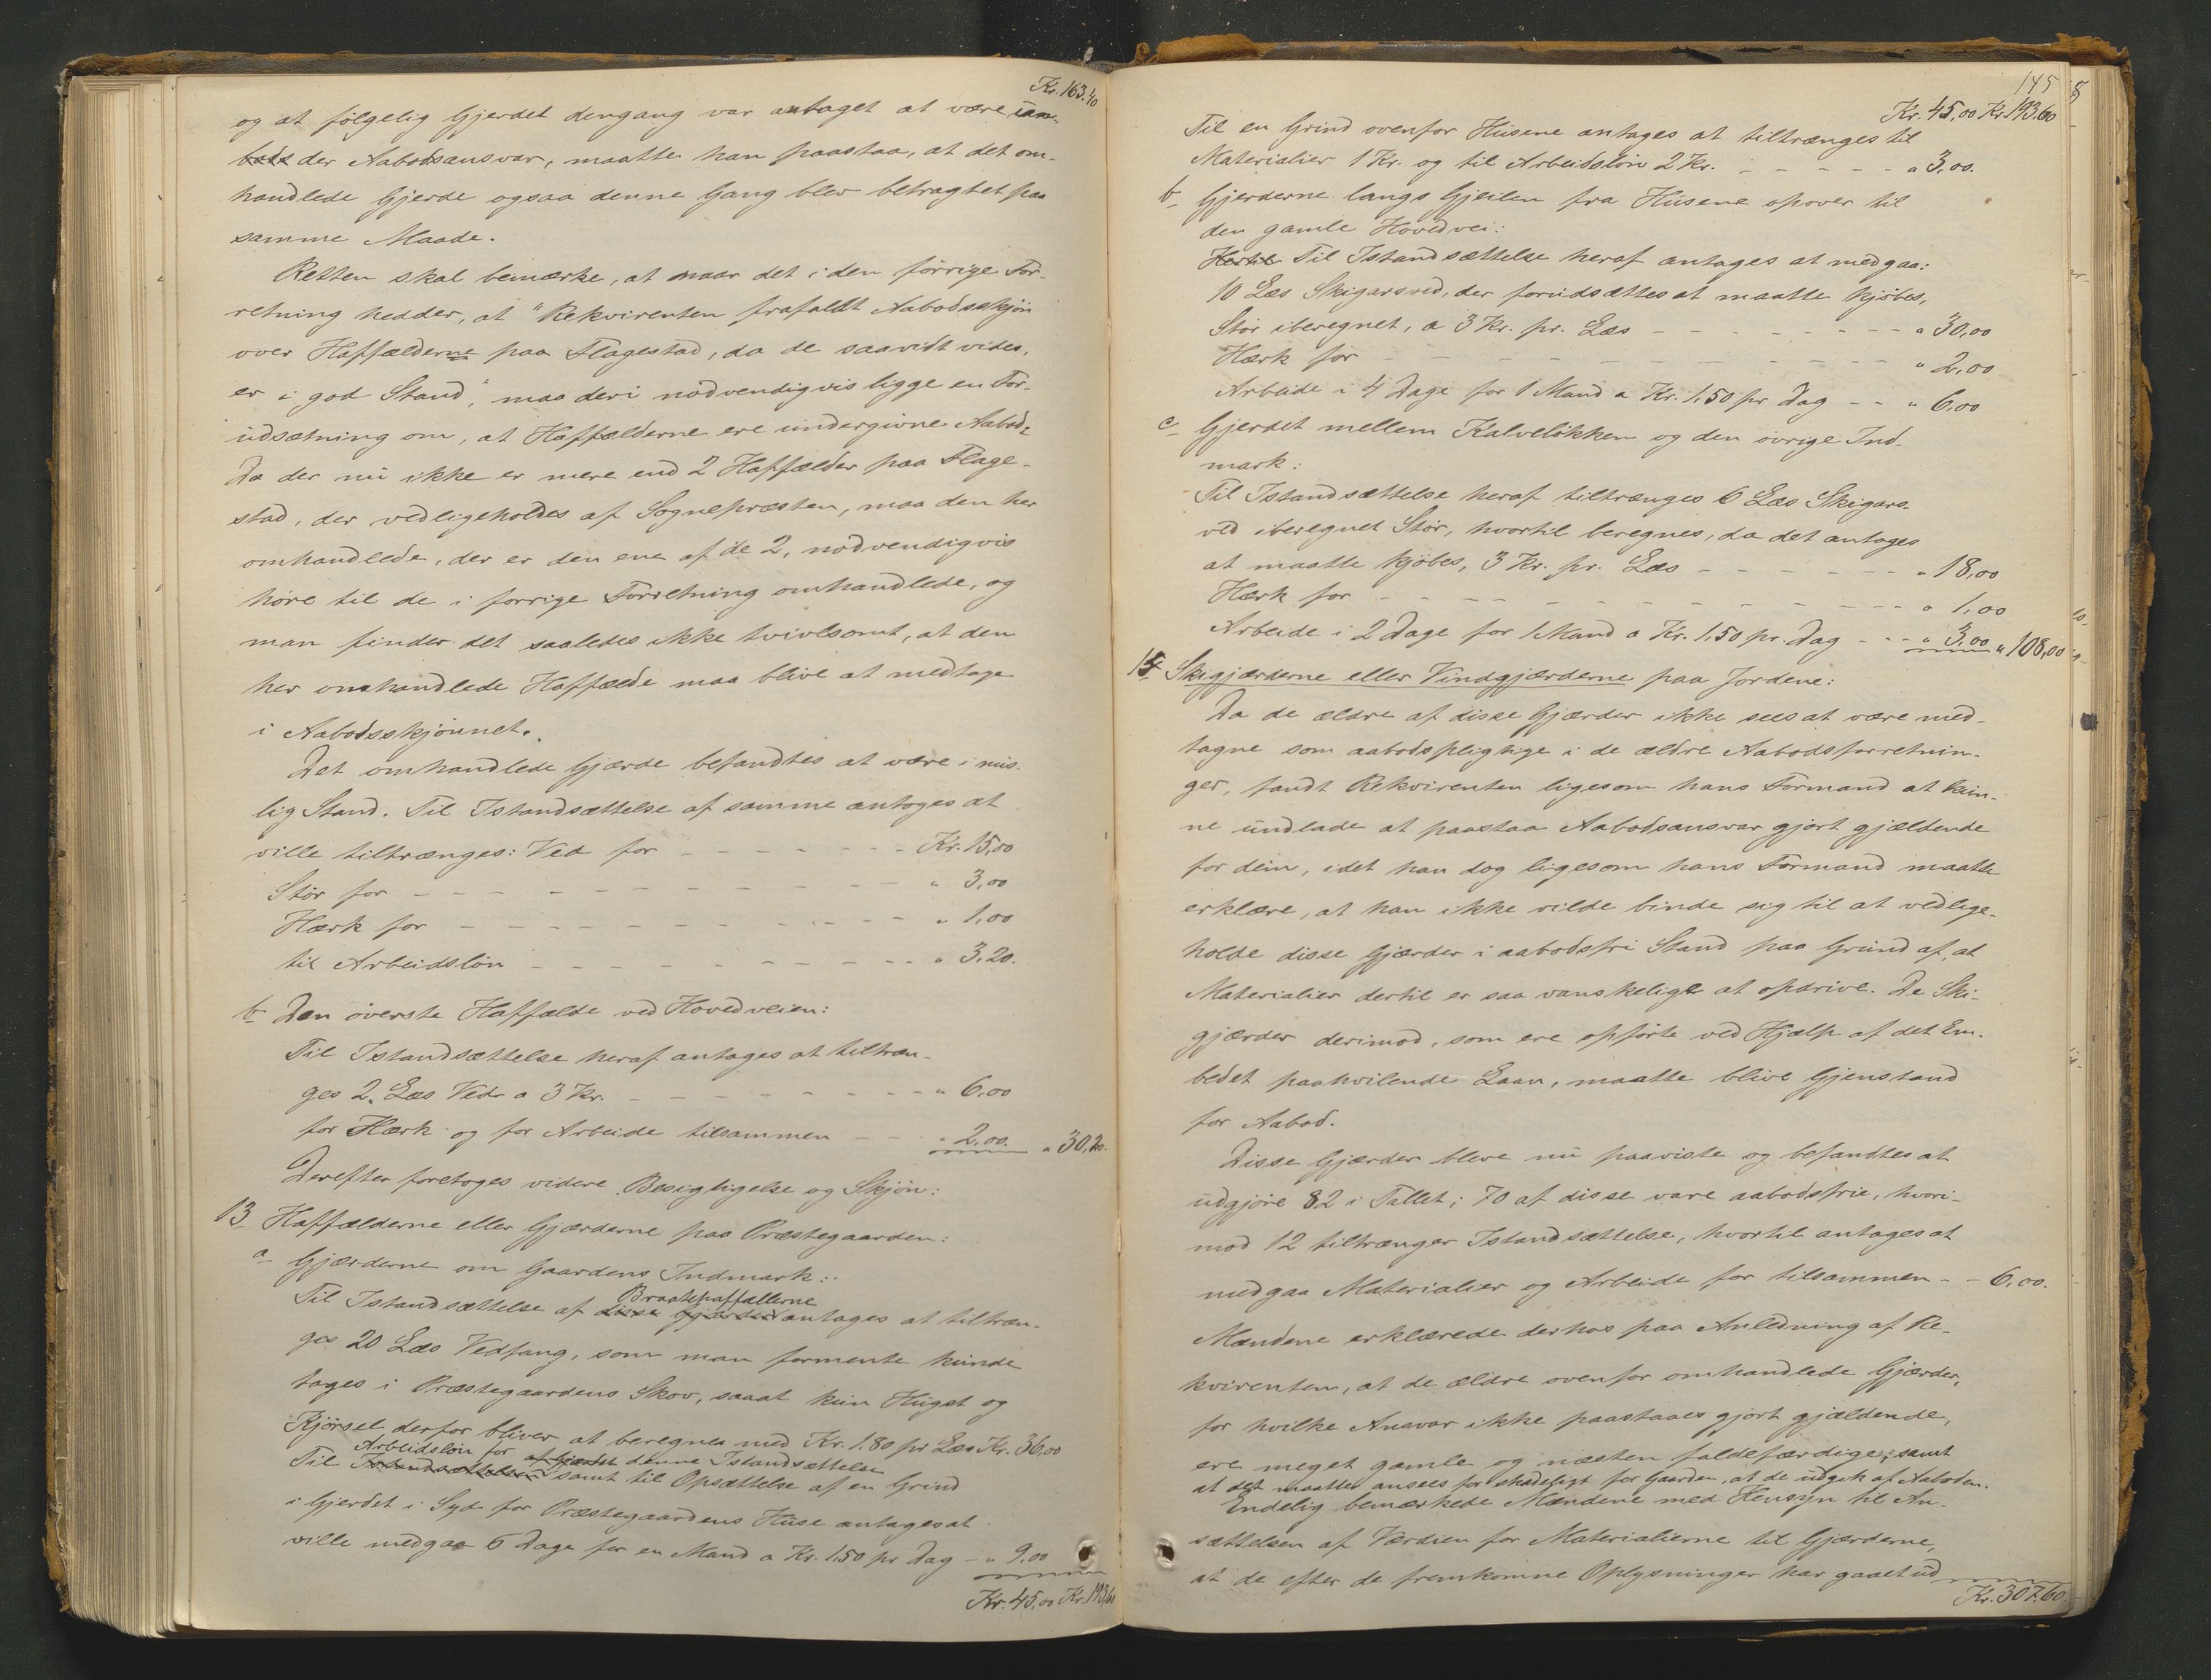 Kr. 163.40
og at følgelig Gjerdet dengang var antaget at være un-
der Aabodsansvar, maatte han paastaa, at det om-
handlede Gjerde ogsaa denne Gang blev betragtet paa
samme Maade.
Retten skal bemærke, at naar det i den forrige For-
retning hedder, at "Rekvirenten frafaldt Aabodsskjøn
over Haffælderne paa Flagestad, da de saavidt vides,
er i god Stand", maa deri nødvendigvis ligge en For-
udsætning om, at Haffælderne ere undergivne Aabod.
Da der nu ikke er mere end 2 Haffælder paa Flage-
stad, der vedligeholdes af Sognepræsten, maa den her
omhandlede, der er den ene af de 2, nødvendigvis
høre til de i forrige Forretning omhandlede, og
man finder det saaledes ikke tvivlsomt, at den
her omhandlede Haffælde maa blive at medtage
i Aabodsskjønnet.
Det omhandlede Gjærde befandtes at være i mis-
lig Stand. Til Istandsættelse af samme antoges at
ville tiltrænges: Ved for - - - Kr. 15,00
Stør for - - - " 3,00
Hærk for - - - " 1,00
til Arbeidsløn - - - " 3,20.
b Den øverste Haffælde ved Hovedveien:
Til Istandsættelse heraf antages at tiltræn-
ges 2 Læs Ved a 3 Kr. - - - " 6,00
for Hærk og for Arbeide tilsammen - - " 2,00. " 30,20.
Derefter foretoges videre Besigtigelse og Skjøn:
13 Haffælderne eller Gjærderne paa Præstegaarden:
a Gjærderne om Gaardens Indmark:
Braatehaffællerne
Til Istandsættelse af disse Gjærder antages at tiltræn-
ges 20 Læs Vedfang, som man formente kunde
tages i Præstegaardens Skov, saaat kun Hugst og
Kjørsel derfor bliver at beregnes med Kr. 1.80 pr Læs Kr. 36,00
Arbeidsløn for af Gjærdet denne Istandsættelse
Til Istandsættelsen samt til Opsættelse af en Grind
i Gjerdet i Syd for Præstegaardens Huse antages at
ville medgaa 6 Dage for en Mand a Kr. 1.50 pr Dag - " 9.00
Kr. 45,00 Kr. 193,60
145
8
Kr. 45,00 Kr. 193.60
Til en Grind ovenfor Husene antages at tiltrænges til
Materialier 1 Kr. og til Arbeidsløn 2 Kr. - - - " 3,00.
b Gjerderne langs Gjeilen fra Husene opover til
den gamle Hovedvei:
Hertil Til Istandsættelse heraf antages at medgaa:
10 Læs Skigarsved, der forudsættes at maatte kjøbes,
Stør iberegnet, a 3 Kr. pr. Læs - - - " 30,00
Hærk for - - - " 2,00
Arbeide i 4 Dage for 1 Mand a Kr. 1.50 pr Dag - - " 6,00
c Gjerdet mellem Kalveløkken og den øvrige Ind-
mark:
Til Istandsættelse heraf tiltrænges 6 Læs Skigars-
ved iberegnet Stør, hvortil beregnes, da det antages
at maatte kjøbes, 3 Kr. pr. Læs - - - " 18,00
Hærk for - - - " 1,00
Arbeide i 2 Dage for 1 Mand a Kr. 1.50 pr. Dag - - " 3,00 " 108,00
14 Skigjærderne eller Vindgjærderne paa Jordene:
Da de ældre af disse Gjærder ikke sees at være med-
tagne som aabodspligtige i de ældre Aabodsforretnin-
ger, fandt Rekvirenten ligesom hans Formand at kun-
ne undlade at paastaa Aabodsansvar gjort gjældende
for dem, idet han dog ligesom hans Formand maatte
erklære, at han ikke vilde binde sig til at vedlige-
holde disse Gjærder i aabodsfri Stand paa Grund af, at
Materialier dertil er saa vanskelige at opdrive. De Ski-
gjærder derimod, som ere opførte ved Hjælp af det Em-
bedet paahvilende Laan, maatte blive Gjenstand
for Aabod.
Disse Gjærder bleve nu paaviste og befandtes at
udgjøre 82 i Tallet; 70 af disse vare aabodsfrie, hvori-
mod 12 tiltrænger Istandsættelse, hvortil antages at
medgaa Materialier og Arbeide for tilsammen - - 6,00.
Mændene erklærede derhos paa Anledning af Re-
kvirenten, at de ældre ovenfor omhandlede Gjærder,
for hvilke Ansvar ikke paastaaes gjort gjældende,
ere meget gamle og næsten faldefærdige, samt
at det maatte ansees for skadeligt for Gaarden, at de udgik af Aaboden.
Endelig bemærkede Mændene med Hensyn til An-
sættelsen af Værdien for Materialierne til Gjærderne,
at de efter de fremkomne Oplysninger har gaaet ud
Kr. 307.60